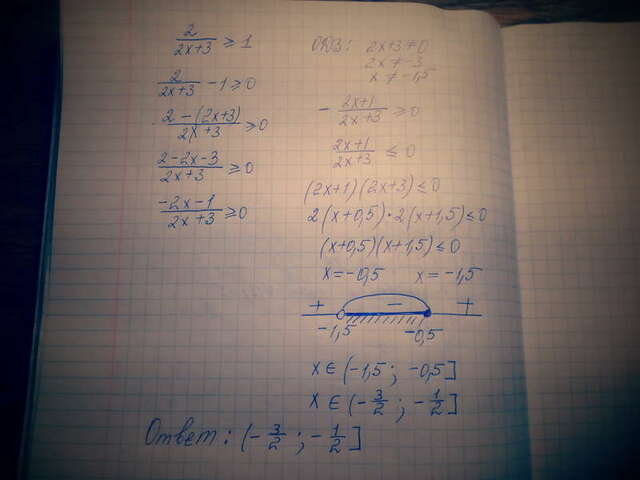 2/(2x+3) ≥ 1
2/(2x+3) - 1 ≥ 0
(2 - (2x+3))/(2x+3) ≥ 0
(2-2x-3)/(2x+3) ≥ 0
(-2x-1)/(2x+3) ≥ 0
ОДЗ: 2x+3≠0
2x ≠ -3
x ≠ -1,5
- (2x+1)/(2x+3) ≥ 0
(2x+1)/(2x+3) ≤ 0
(2x+1)(2x+3) ≤ 0
2(x+0,5)·2(x+1,5) ≤ 0
(x+0,5)(x+1,5) ≤ 0
x=-0,5 x=-1,5
+ - +
-1,5 -0,5
x ∈ (-1,5; -0,5]
x ∈ (-3/2; -1/2]
Ответ: (-3/2; -1/2]